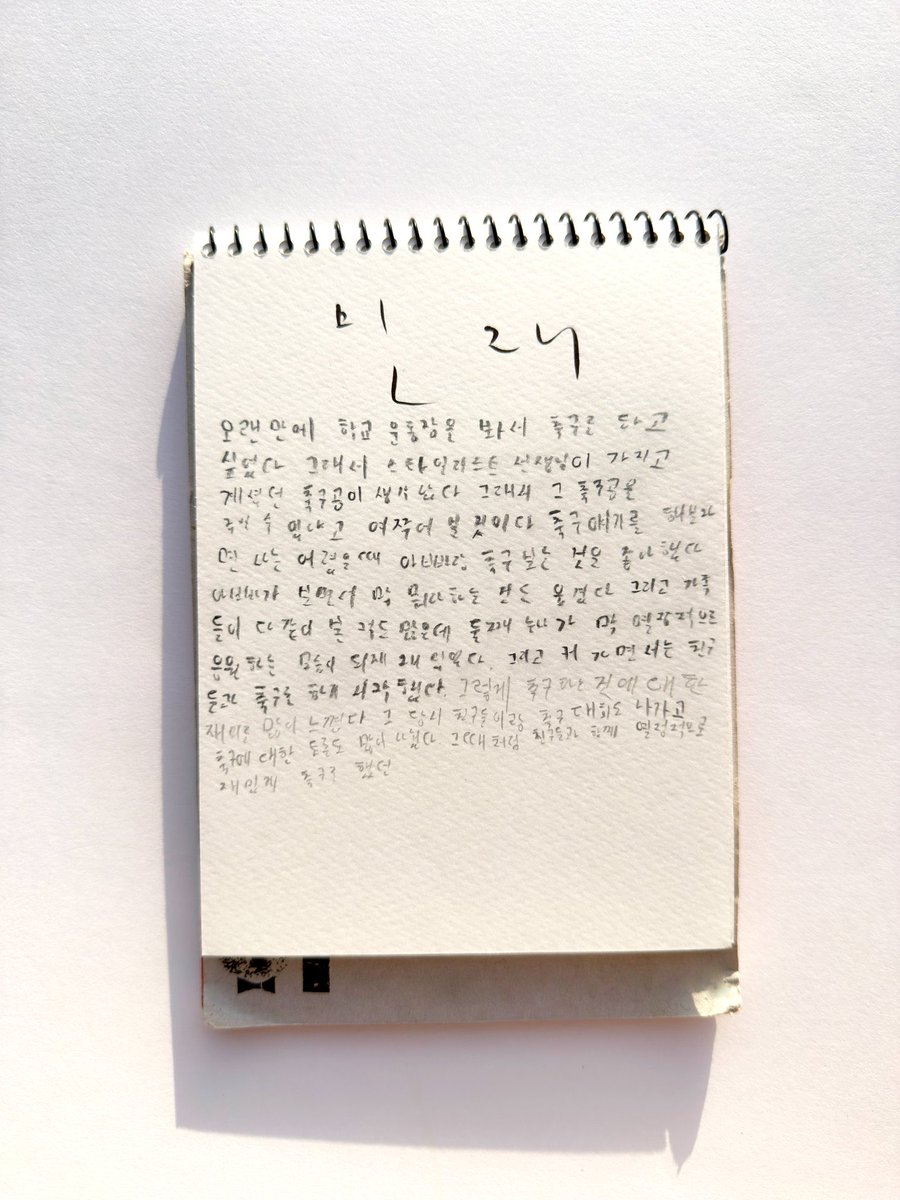 민 래
오랜만에 학교 운동장을 봐서 축구를 하고
싶었다 그래서 스타일리스트 선생님이 가지고
계셨던 축구공이 생각 났다 그래서 그 축구공을
수 있냐고 여쭈어 볼 것이다 축구 얘기를 해보자
면 나는 어렸을때 아빠랑 축구 보는 것을 좋아했다
아빠가 보면서 막 뭐라하는 것도 웃겼다 그리고 가족
들이 다같이 본 적도 많은데 둘째 누나가 막 열광적으로
응원하는 모습이 되게 재밌었다. 그리고 커 가면서는 친구
들과 축구를 하기 시작했다. 그렇게 축구라는 것에 대한
재미를 많이 느꼈다 그 당시 친구들이랑 축구 대회도 나가고
축구에 대한 토론도 많이 나눴다 그때처럼 친구들과 함께 열정적으로
재밌게 축구를 했던